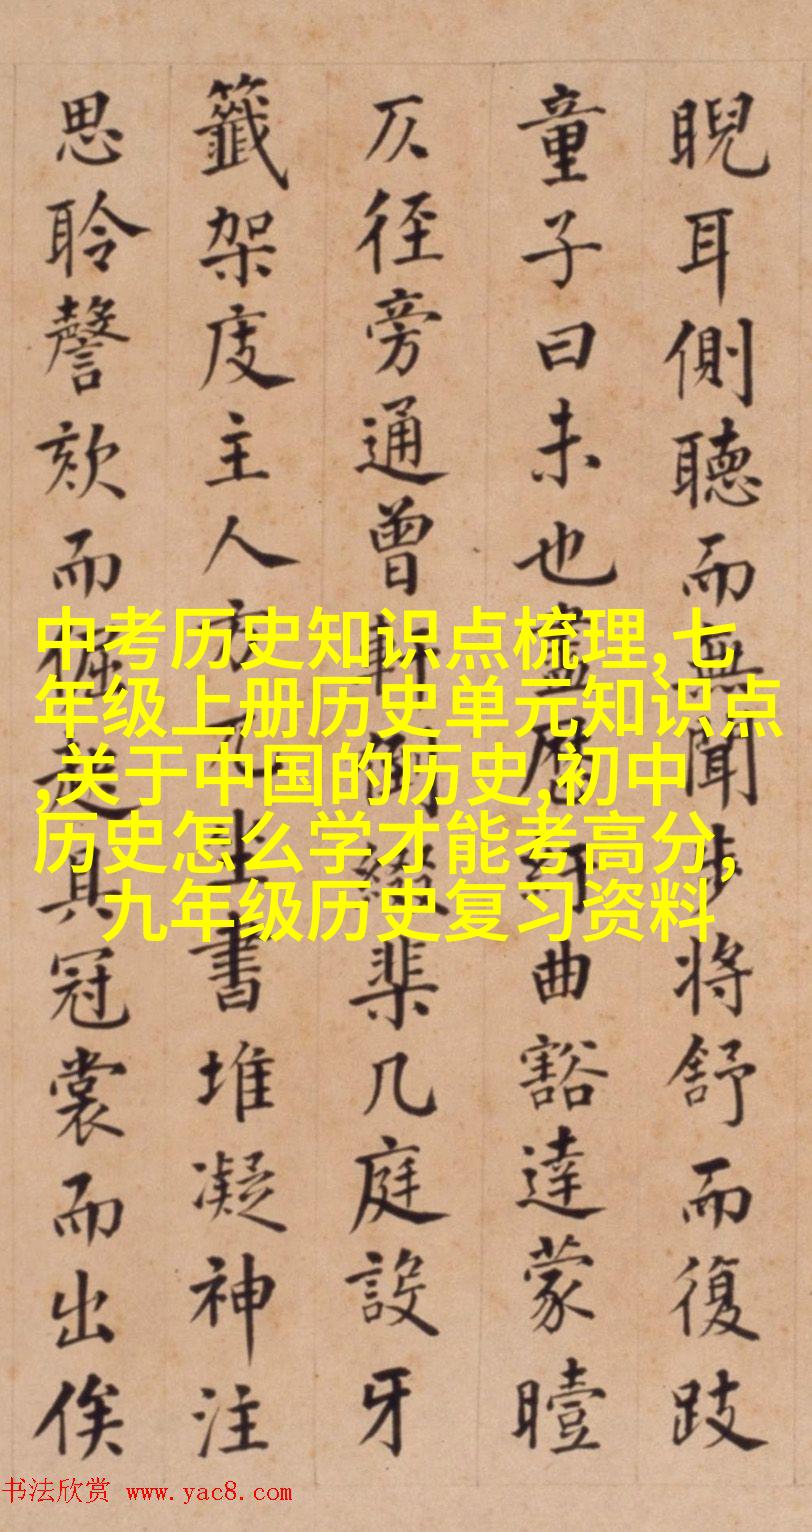 睨耳側聽而無聞步將舒而復跂
童子曰未也盍歷紆曲豁達蒙曀
仄徑旁通曾軒閉綴棐几庭設牙
籤架庋主人方兀坐書堆凝神注
思聆謦欬而倔起具冠裳而出俟
中考历史知识点梳理,七
年级上册历史单元知识点
,关于中国的历史,初中
历史怎么学才能考高分,
九年级历史复习资料
书法欣赏 www.yac8.com